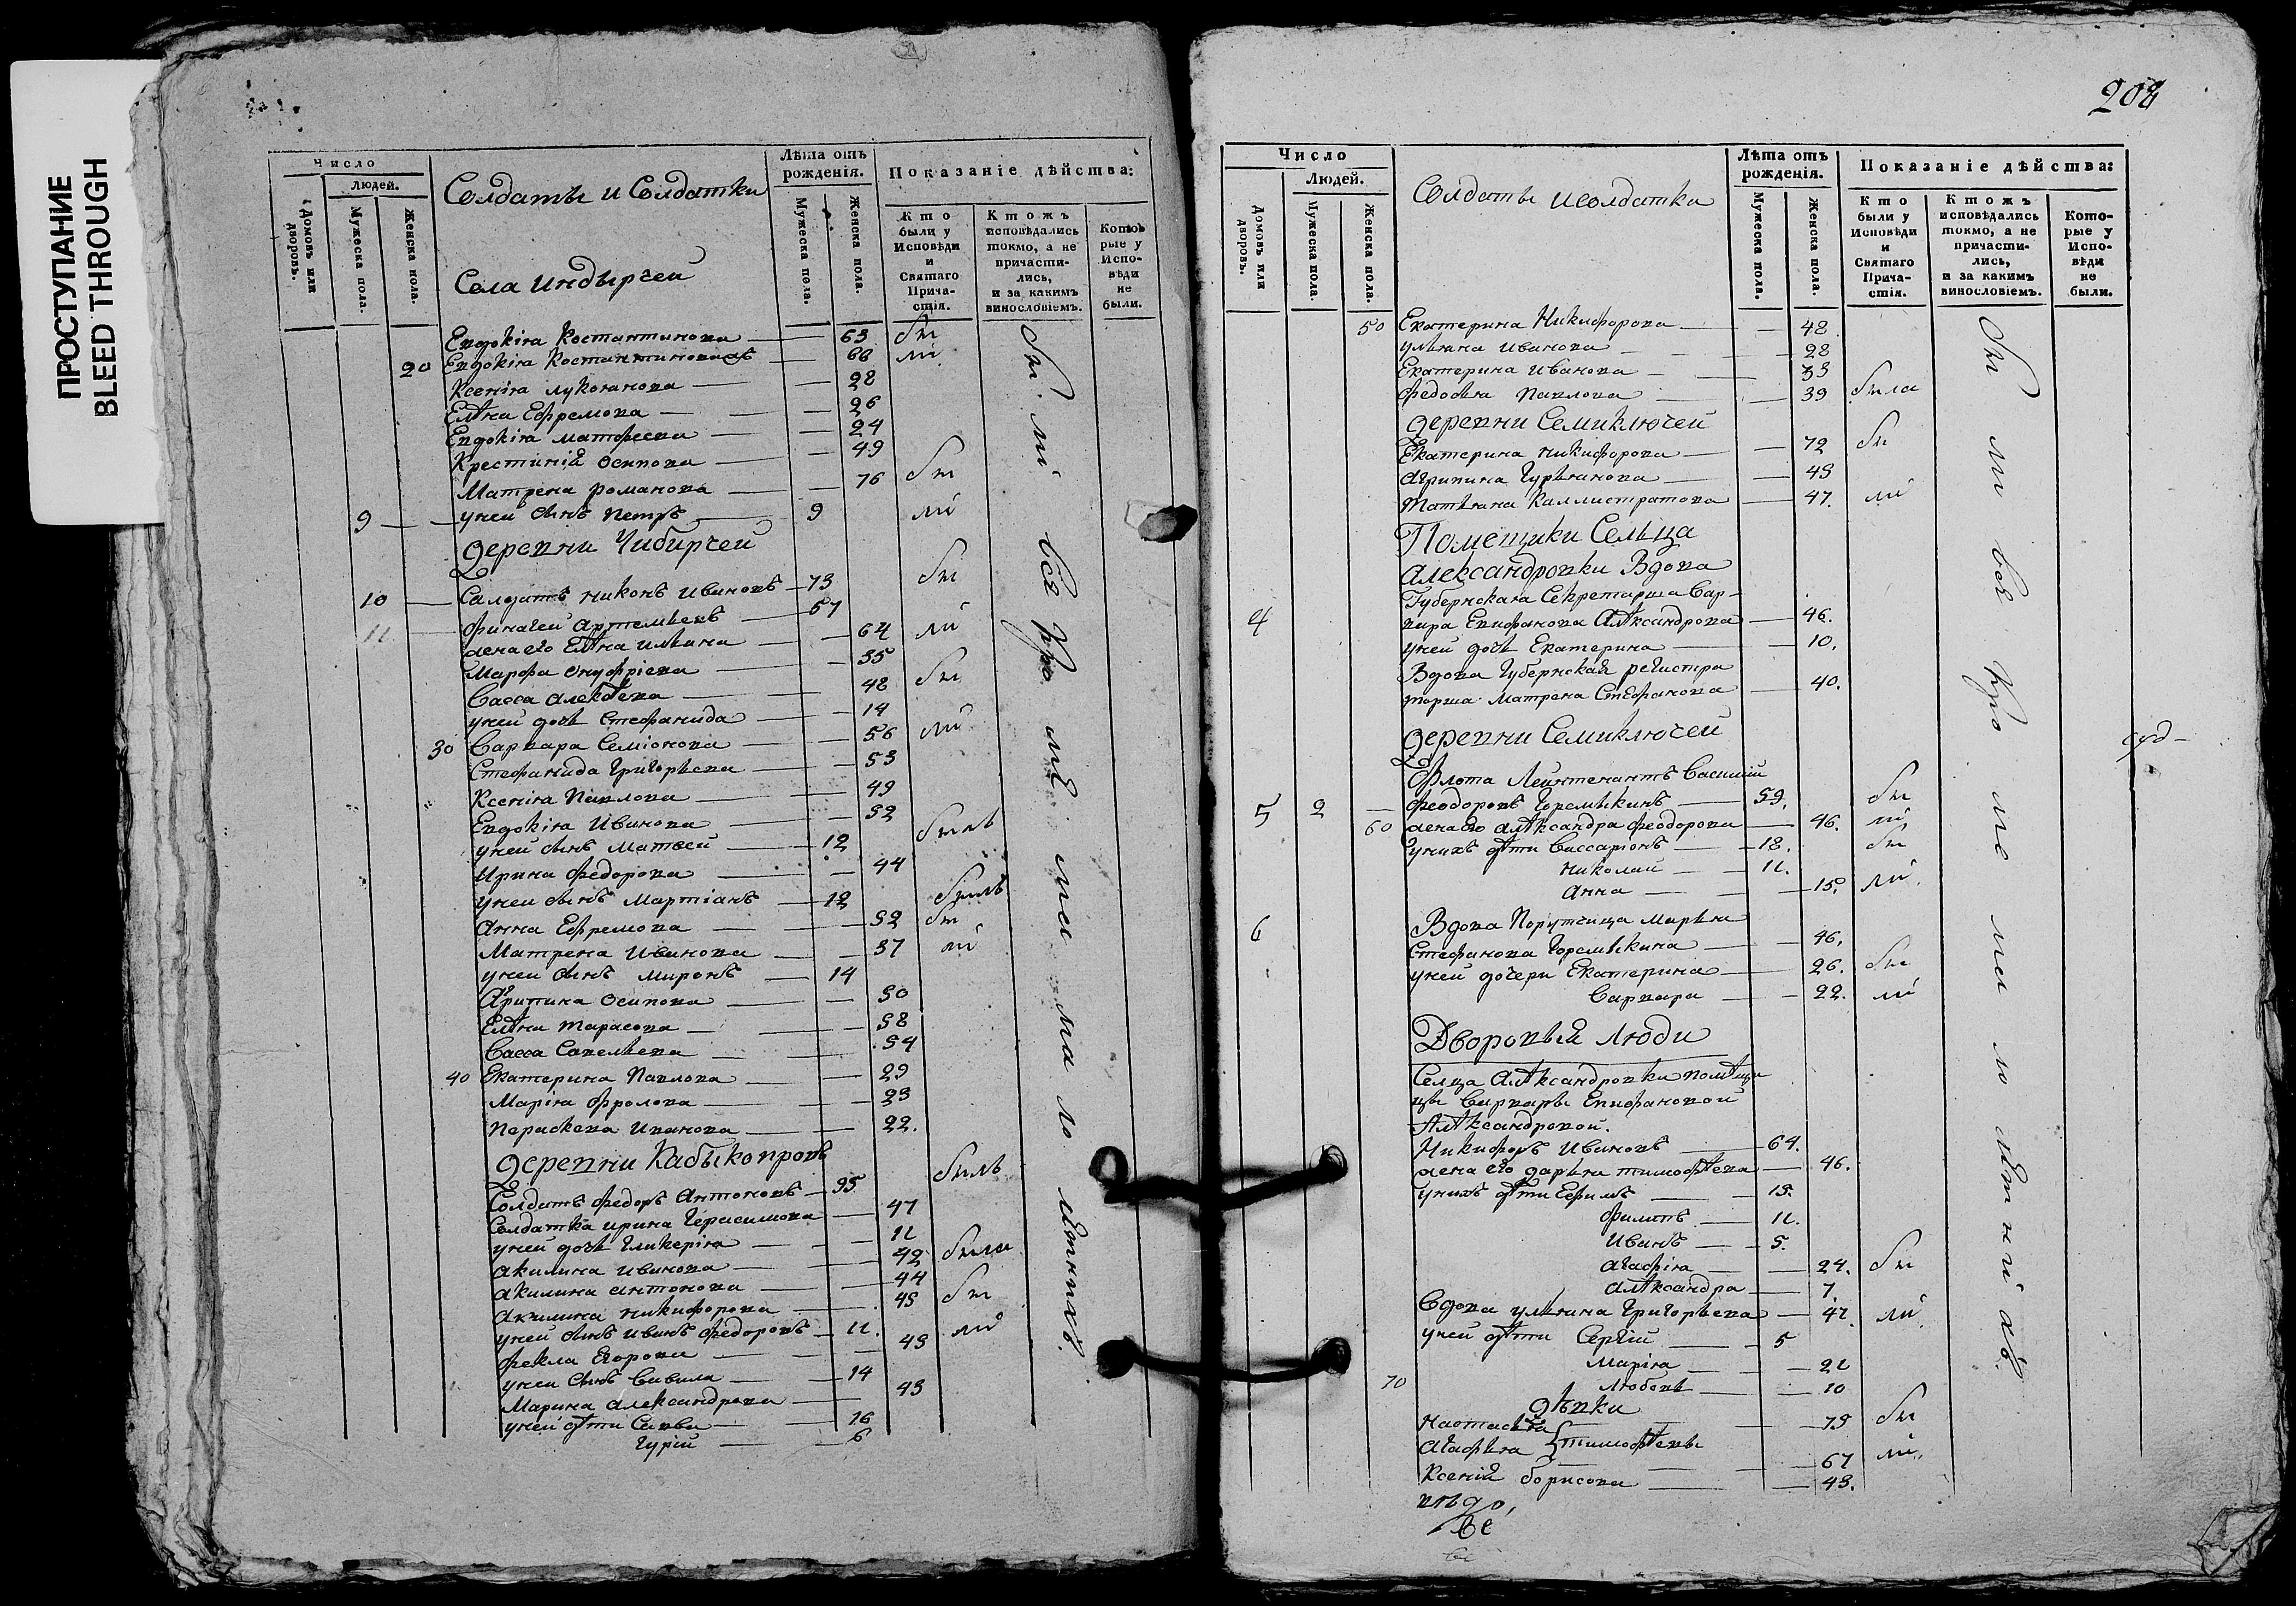 ПРОСТУПАНИЕ
BLEED THROUGH
Число
Людей.
Домовъ или дворовъ.
Мужеска пола.
Женска пола.
Солдаты и Солдатки
Села Индырчеи
Лѣта отъ рожденія.
Мужеска пола.
Женска пола.
Показаніе дѣйства:
Кто были у Исповѣди и Святаго Причастія.
Ктожъ исповѣдались токмо, а не причастились, и за какимъ винословіемъ.
Которые у Исповѣди не были.
Евдокіѧ Костантинова 63 бы
20 Евдокіѧ Костантиноваѧ 66 ли
Ксеніѧ Лукоѧнова 28
Елѣна Ефремова 26
Евдокіѧ Матфеева 24
Крестиніѧ Осипова 49
Матрена Романова 76 бы
9 уней сынъ Петръ 9 ли
деревни Чибирчеи
10 Салдатъ Никонъ Ивановъ 73 бы
11 Финагеи Артемьевъ 67
жена его Елѣна Ильина 64 ли
Марфа Онуфріева 35
Васса Алексѣева 48 бы
уней дочь Стефанида 14
30 Варвара Семіонова 56 ли
Стефанида Григорьева 53
Ксеніѧ Павлова 49
Евдокіѧ Иванова 52
уней сынъ Матвеи 12 былъ
Ирина Федорова 44
уней сынъ Мартіанъ 12 былъ
Анна Ефремова 32 бы
Матрена Иванова 37 ли
уней сынъ Миронъ 14
Агрипина Осипова 30
Елѣна Тарасова 38
Васса Савельева 34
40 Екатерина Павлова 29
Маріѧ Фролова 23
Параскева Иванова 22.
деревни Кабыкопровъ
Солдатъ Федоръ Антоновъ 35 былъ
Солдатка Ирина Герасимова 47
уней дочь Гликеріѧ 11
Акилина Иванова 42 была
Акилина Антонова 44
Акилина Никифорова 43 бы
уней сынъ Иванъ Федоровъ 11. ли
Фекла Егорова 43
уней сынъ Вавила 14
Марина Александрова 43
уней дѣти Савва 16
Гурій 6
бы ли всѧ кро мѣ ма ло лѣтнихъ.
204
Число
Людей.
Домовъ или дворовъ.
Мужеска пола.
Женска пола.
Солдаты исолдатка
Лѣта отъ рожденія.
Мужеска пола.
Женска пола.
Показаніе дѣйства:
Кто были у Исповѣди и Святаго Причастія.
Ктожъ исповѣдались токмо, а не причастились, и за какимъ винословіемъ.
Которые у Исповѣди не были.
50 Екатерина Никифорова 48
Ульѧна Иванова 28
Екатерина Иванова 33
Федосьѧ Павлова 39 была
деревни Семиключеи
Екатерина Никифорова 72 бы
Агрипина Гурьѧнова 43
Татьѧна Каллистратова 47. ли
Помещики Сельца
Александровки Вдова
Губернскаѧ Секретарша Вар-
4 вара Епифанова Алѣксандрова 46.
уней дочь Екатерина 10.
Вдова Губернскаѧ регистра
торша Матрена Стефанова 40.
деревни Семиключеи
Флота Леитенантъ Василіи
5 2 Феодоровъ Горемыкинъ 59. бы
60 жена его Алѣксандра Феодорова 46. ли
унихъ дѣти Виссаріонъ 12. бы
Николаи 11.
Анна 15. ли
6 Вдова Порутчица Марьѧ
Стефанова Горемыкина 46.
уней дочери Екатерина 26. бы
Варвара 22. ли
Дворовыѧ Люди
Селца Алѣксандровки помѣщи
цы Варвары Епифановои
Алѣксандровои.
Никифоръ Ивановъ 64.
жена его Дарьѧ Тимофѣева 46.
унихъ дѣти Ефимъ 15.
Филипъ 11.
Иванъ 5.
Агафіѧ 24. бы
Алѣксандра 7.
Вдова Ульѧна Григорьева 42. ли
уней дѣти Сергіи 5
Маріѧ 21
70 Любовь 10
дѣвки
Настасьѧ 73 бы
Агафьѧ Тимофѣевы 67 ли
Ксеніѧ Борисова 43.
бы ли всѧ кро мѣ ма ло лѣтніхъ.